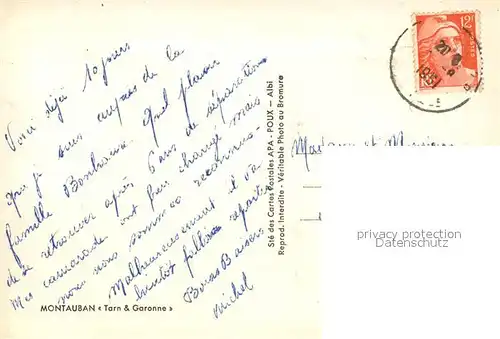 Voici déjà 10 jours
que je suis auprès de la
famille Bonhaure. Quel plaisir
de se retrouver après 6 ans de séparation
Mes camarades ont peu changé mais
nous nous sommes reconnus.
Malheureusement il va
bientôt falloir repartir
Bons Baisers
Michel
MONTAUBAN « Tarn & Garonne »
Sté des Cartes Postales APA - POUX - Albi
Reprod. Interdite - Véritable Photo au Bromure
12F
POSTES
20
1951
Madame et Monsieur
privacy protection
DatasetGenerator.com